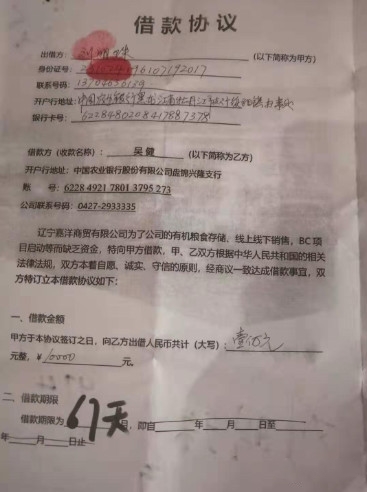 借款协议
出借方： （以下简称为甲方）
身份证号：
联系号码：
开户行地址：中国农业银行
银行卡号：6228480208417887378
借款方（收款名称）：吴健 （以下简称为乙方）
开户行地址：中国农业银行股份有限公司盘锦兴隆支行
账 号：6228 4921 7801 3795 273
公司联系号码：0427-2933335
辽宁嘉洋商贸有限公司为了公司的有机粮食存储、线上线下销售，BC项
目启动等而缺乏资金，特向甲方借款，甲、乙双方根据中华人民共和国的相关
法律法规，双方本着自愿、诚实、守信的原则，经商议一致达成借款事宜，双
方特订立本借款协议如下：
一、借款金额
甲方于本协议签订之日，向乙方出借人民币共计（大写）：壹万元
元整，¥10000 元。
二、借款期限
借款期限为 67天 月，即自 年 月 日至
年 月 日止